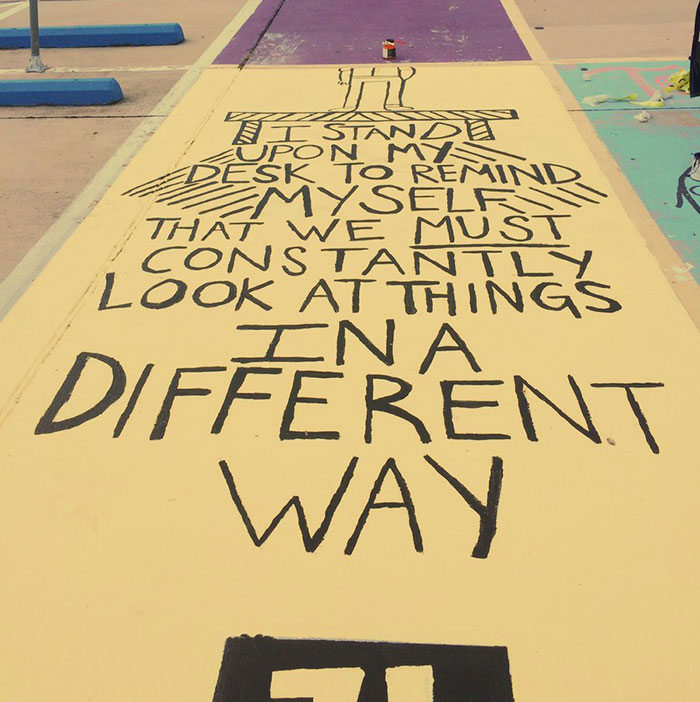 I STAND
UPON MY
DESK TO REMIND
MYSELF
THAT WE MUST
CONSTANTLY
LOOK AT THINGS
IN A
DIFFERENT
WAY
71